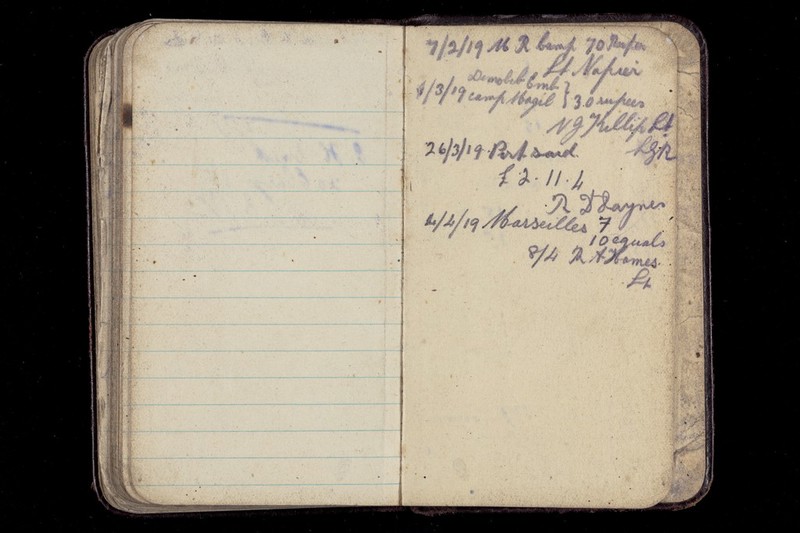 7/2/19 M R Camp 70 Rupees
Lt Napier
Demob Emb
/3/19 camp Magil } 30 rupees
N G Lt
26/3/19 Port Said
£ 2.11.4
R D
4/4/19 Marseilles 7
10 equals
8/4 R A Homes
Lt